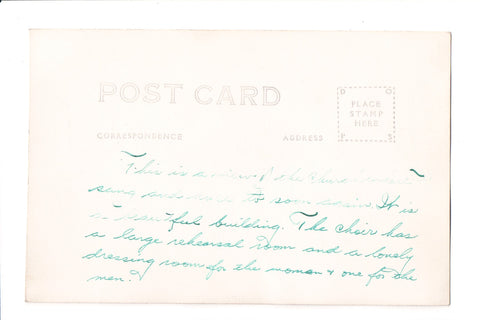 POST CARD
PLACE
STAMP
HERE
CORRESPONDENCE
ADDRESS
This is a view of the Church
sang and to soon again. It is
a beautiful building. The choir has
a large rehearsal room and a lovely
dressing room for the women & one for the
men.